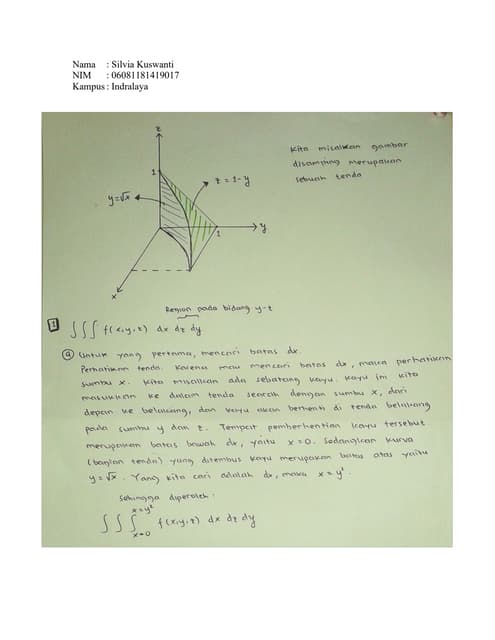 Nama : Silvia Kuswanti
NIM : 06081181419017
Kampus : Indralaya
z
Kita misalkan gambar
disamping merupakan
sebuah tenda
1
z = 1 - y
y = √x
1
y
x
Region pada bidang y-z
1 ∫∫∫ f(x,y,z) dx dz dy
a Untuk yang pertama, mencari batas dx.
Perhatikan tenda. Karena mau mencari batas dx, maka perhatikan
sumbu x. Kita misalkan ada sebatang kayu. Kayu ini kita
masukkan ke dalam tenda searah dengan sumbu x, dari
depan ke belakang, dan kayu akan berhenti di tenda belakang
pada sumbu y dan z. Tempat pemberhentian kayu tersebut
merupakan batas bawah dx, yaitu x = 0. Sedangkan kurva
(bagian tenda) yang ditembus kayu merupakan batas atas yaitu
y = √x. Yang kita cari adalah dx, maka x = y².
Sehingga diperoleh :
x = y²
∫∫∫ f(x,y,z) dx dz dy
x = 0